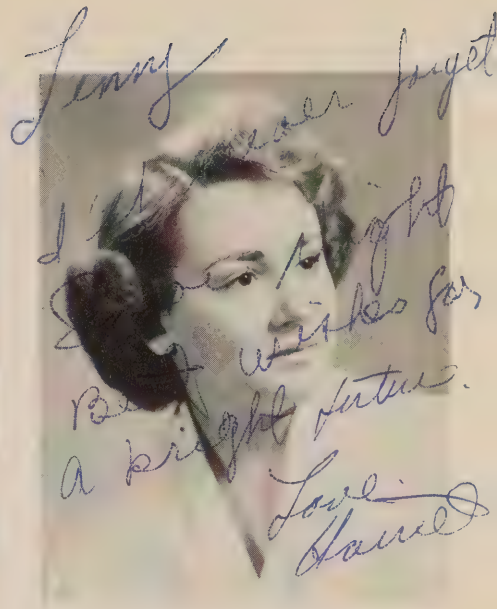 Jenny
I'll never forget
night
Best wishes for
a bright future.
Love